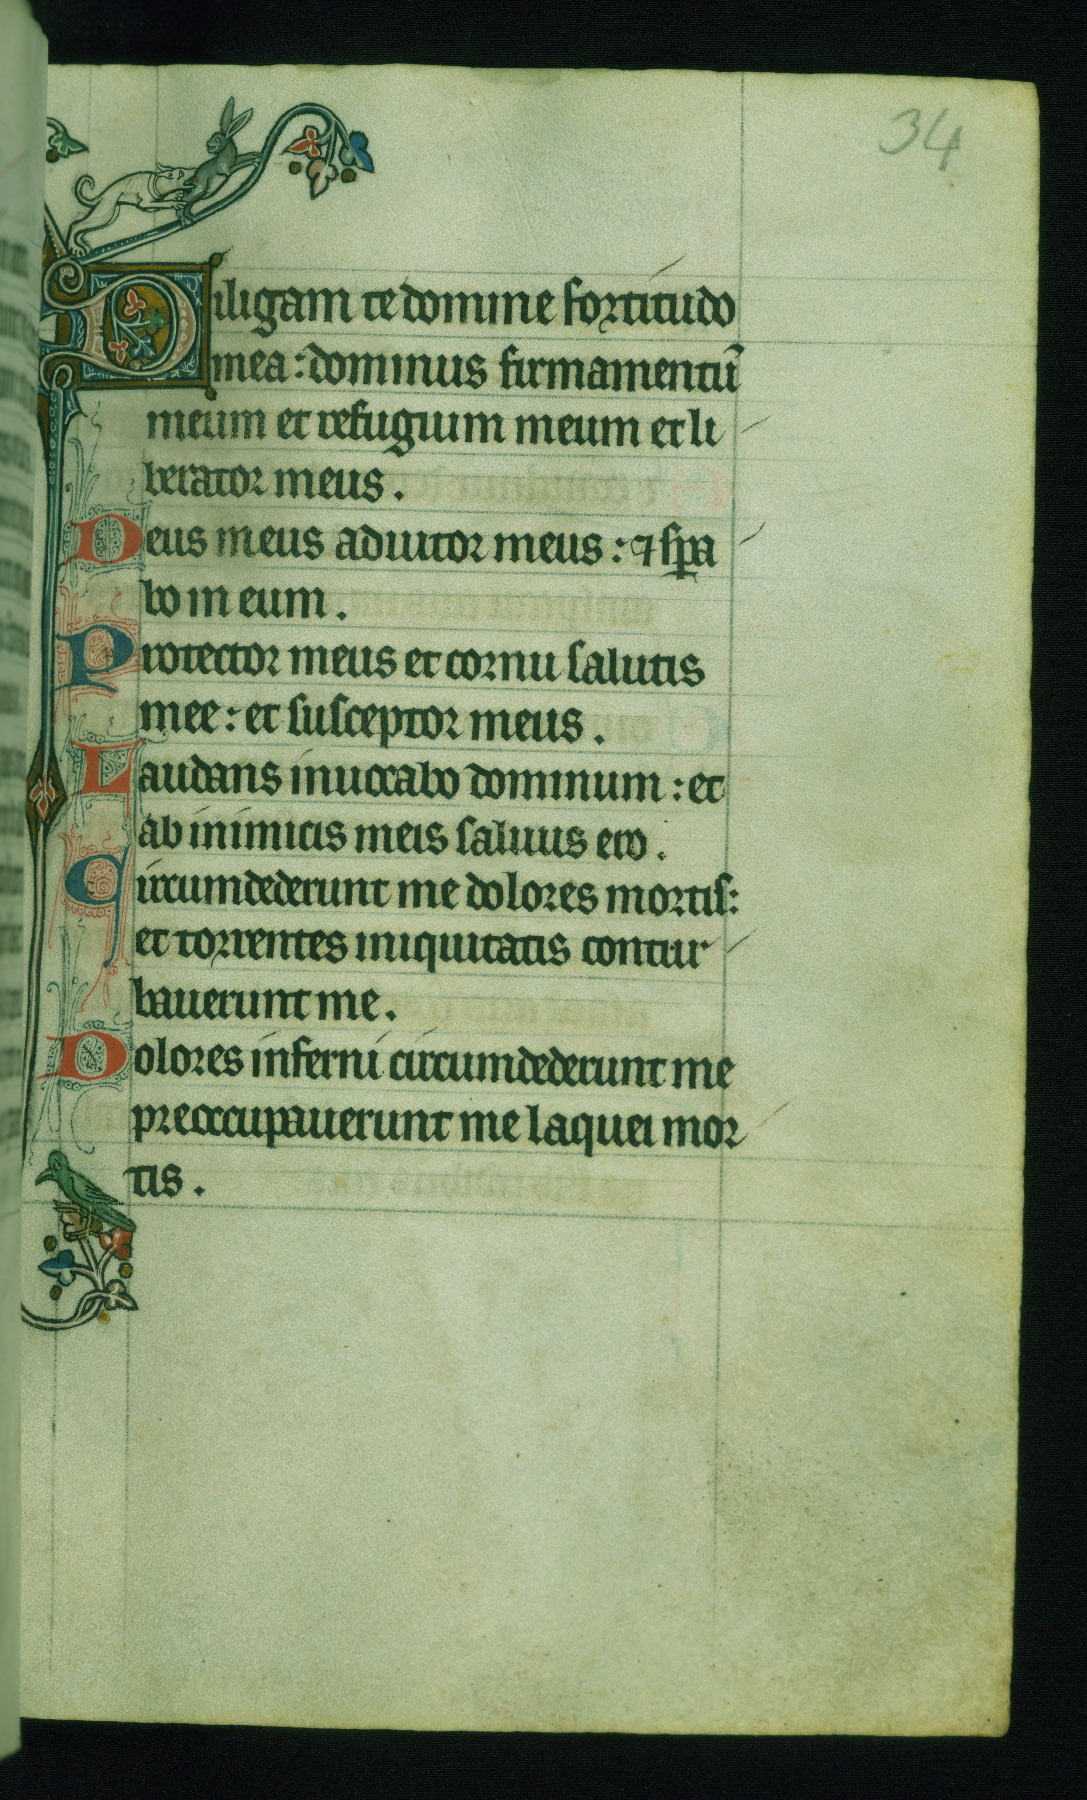 34
Diligam te domine fortitudo
mea : dominus firmamentū
meum et refugium meum et li
berator meus .
Deus meus adiutor meus : ⁊ sꝑa
bo in eum .
Protector meus et cornu salutis
mee : et susceptor meus .
Laudans inuocabo dominum : et
ab inimicis meis saluus ero .
Circumdederunt me dolores mortis :
et torrentes iniquitatis contur
bauerunt me .
Dolores inferni circumdederunt me
preoccupauerunt me laquei mor
tis .